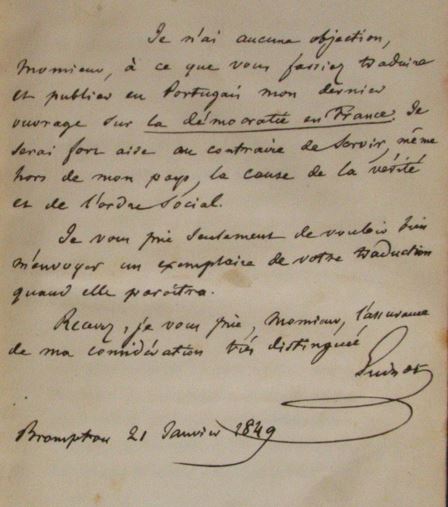 Je n'ai aucune objection,
Monsieur, à ce que vous fassiez traduire
et publier en Portugais mon dernier
ouvrage sur la démocratie en France. Je
serai fort aise au contraire de servir, même
hors de mon pays, la cause de la vérité
et de l'ordre social.
Je vous prie seulement de vouloir bien
m'envoyer un exemplaire de votre traduction
quand elle paroîtra.
Recevez, je vous prie, Monsieur, l'assurance
de ma considération très distinguée
Guizot
Brompton 21 Janvier 1849